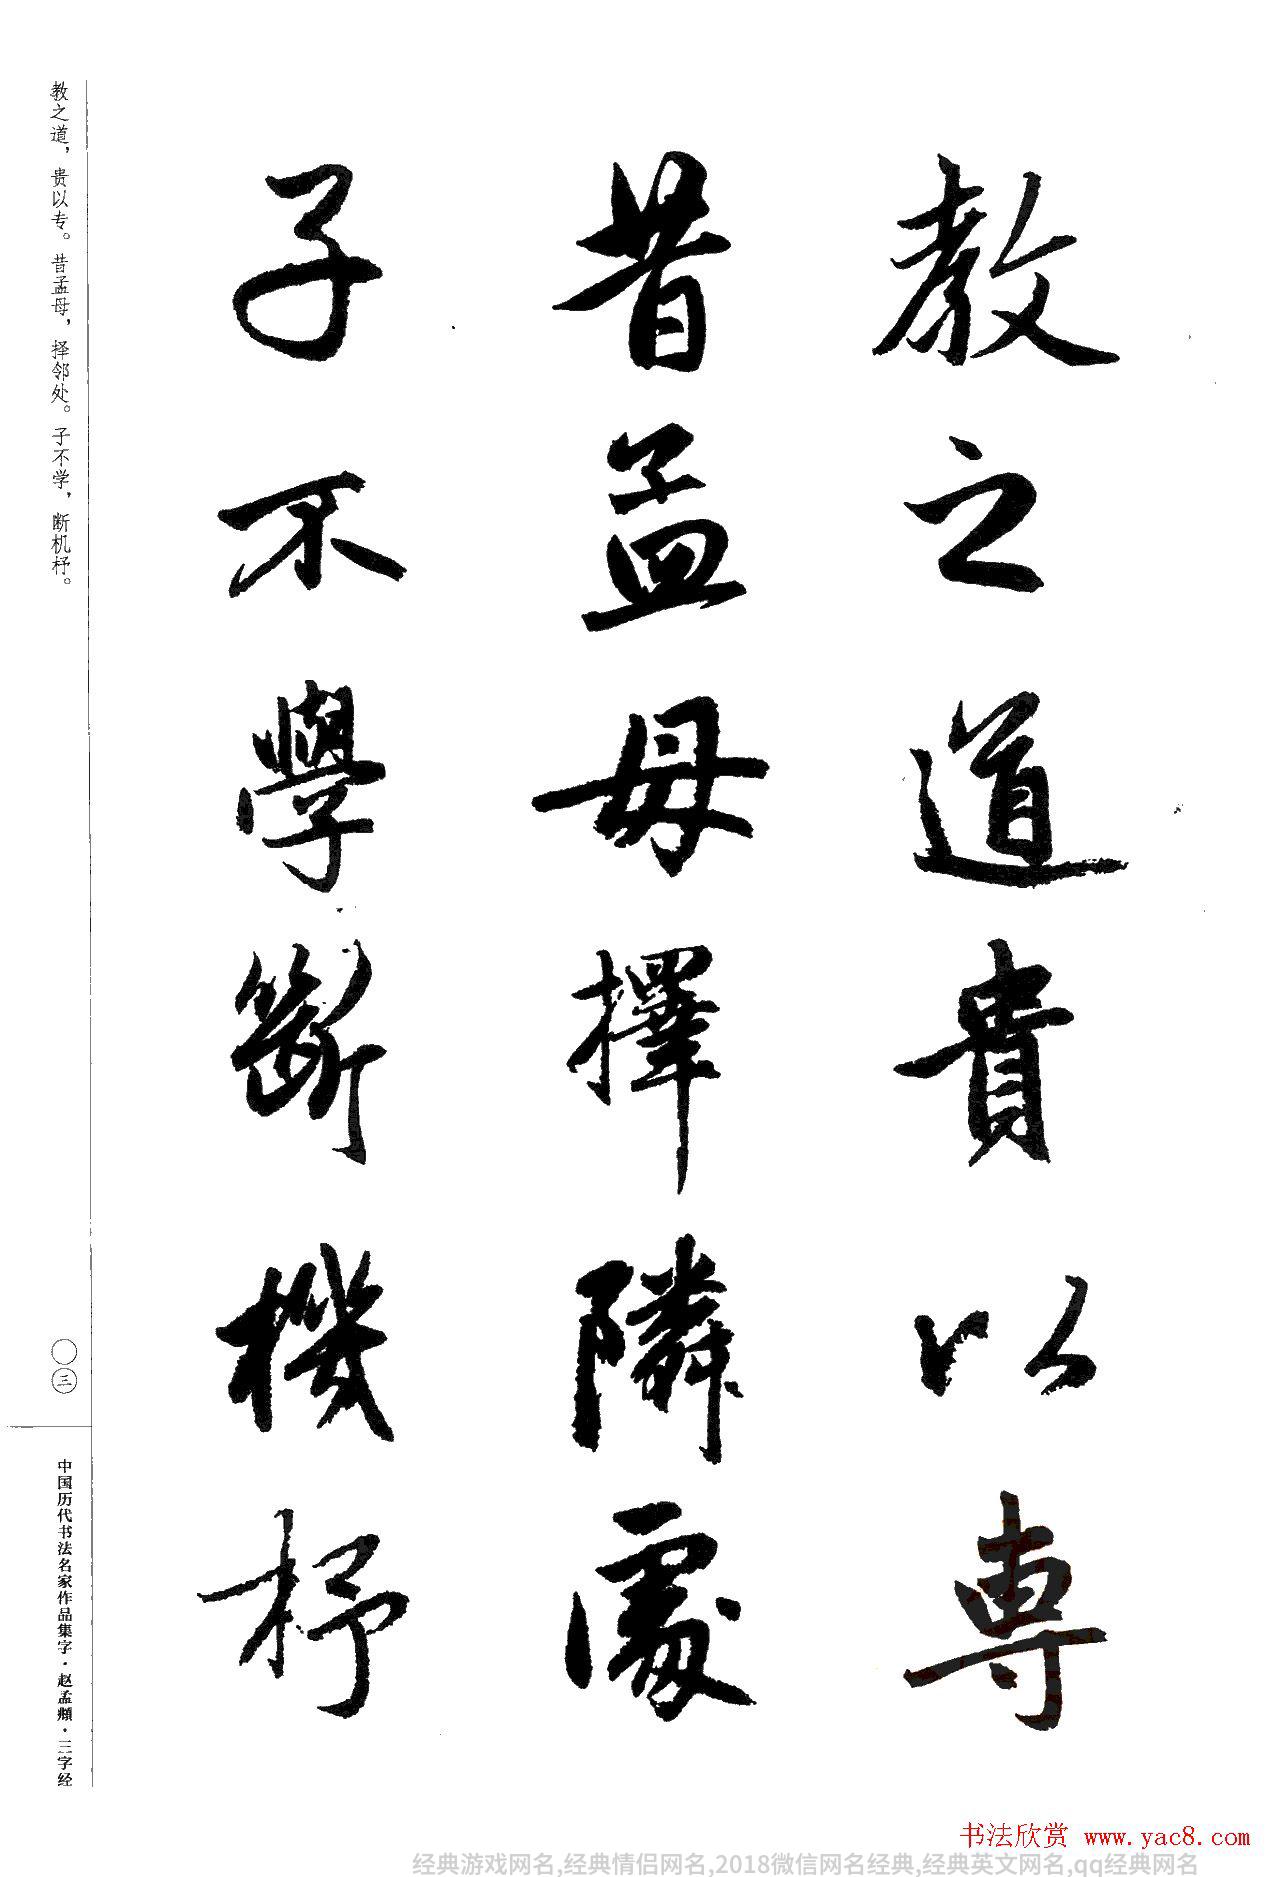 教之道貴以專
昔孟母擇隣處
子不學斷機杼
教之道，贵以专。昔孟母，择邻处。子不学，断机杼。
〇三
中国历代书法名家作品集字·赵孟頫·三字经
书法欣赏 www.yac8.com
经典游戏网名,经典情侣网名,2018微信网名经典,经典英文网名,qq经典网名